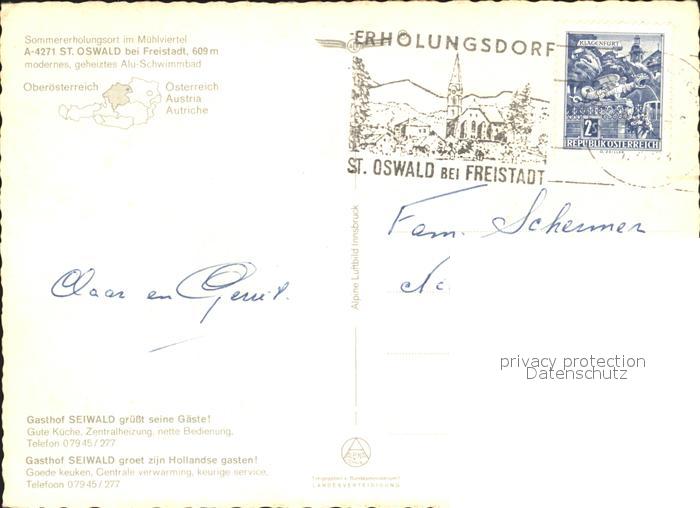 Sommererholungsort im Mühlviertel
A-4271 ST. OSWALD bei Freistadt, 609 m
modernes, geheiztes Alu-Schwimmbad
Oberösterreich
Österreich
Austria
Autriche
ERHOLUNGSDORF
ST. OSWALD BEI FREISTADT
KLAGENFURT
2S
REPUBLIK ÖSTERREICH
Fam. Schermer
Alpine Luftbild Innsbruck
en Gerrit.
privacy protection
Datenschutz
Gasthof SEIWALD grüßt seine Gäste!
Gute Küche, Zentralheizung, nette Bedienung,
Telefon 0 79 45 / 277
Gasthof SEIWALD groet zijn Hollandse gasten!
Goede keuken, Centrale verwarming, keurige service,
Telefoon 0 79 45 / 277
LANDESVERTEIDIGUNG